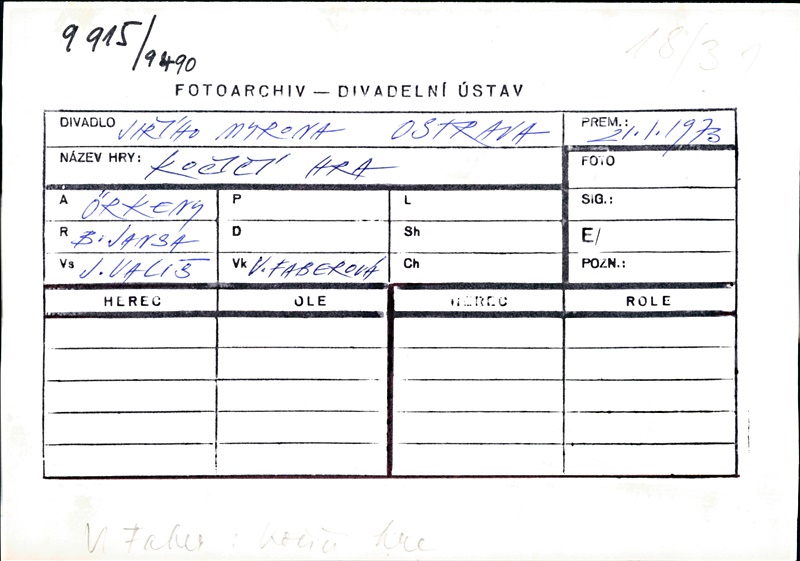 9915/9490
18/31
FOTOARCHIV — DIVADELNÍ ÚSTAV
DIVADLO JIŘÍHO MYRONA OSTRAVA PREM.: 21.1.1973
NÁZEV HRY: KOČIČÍ HRA FOTO
A ÖRKENY P L SIG.:
R B. JANSA D Sh E/
Vs J. VALIŠ Vk V. FABEROVÁ Ch POZN.:
HEREC OLE HEREC ROLE
V. Faber : kočičí hra